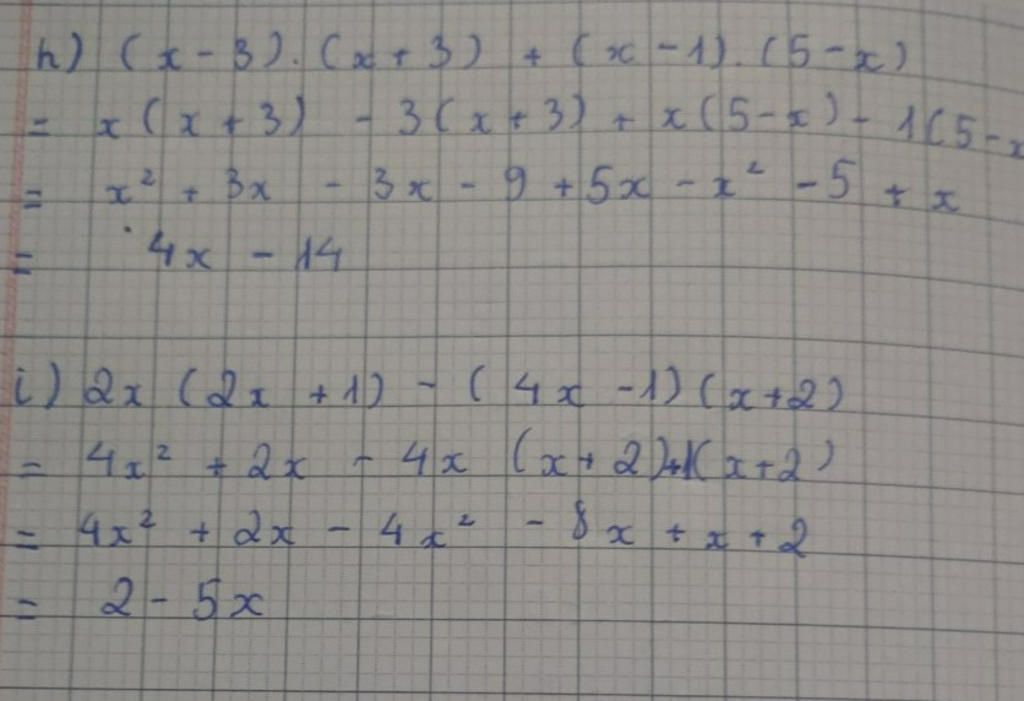 h) (x - 3).(x + 3) + (x - 1).(5 - x)
= x(x + 3) - 3(x + 3) + x(5 - x) - 1(5 - x
= x² + 3x - 3x - 9 + 5x - x² - 5 + x
= 4x - 14
i) 2x (2x + 1) - (4x - 1)(x + 2)
= 4x² + 2x - 4x (x + 2)+1(x + 2)
= 4x² + 2x - 4x² - 8x + x + 2
= 2 - 5x